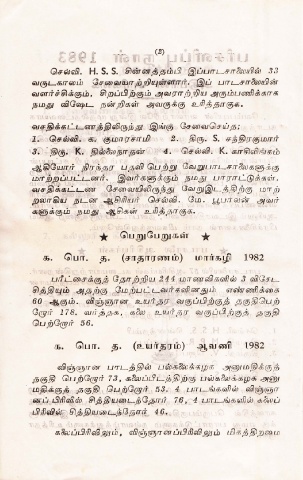 (2)
செல்வி. H. S. S. சின்னத்தம்பி இப்பாடசாலையில் 33
வருடகாலம் சேவையாற்றியுள்ளார். இப் பாடசாலையின்
வளர்ச்சிக்கும், சிறப்பிற்கும் அவராற்றிய அரும்பணிக்காக
நமது விஷேட நன்றிகள் அவருக்கு உரித்தாகுக.
வசதிக்கட்டணத்திலிருந்து இங்கு சேவைசெய்த:
1. செல்வி. க. குமாரசாமி 2. திரு. S. சந்திரகுமார்
3. திரு. K. தில்லைநாதன் 4. செல்வி. K. வாசிலிங்கம்
ஆகியோர் நிரந்தர பதவி பெற்று வேறுபாடசாலைகளுக்கு
மாற்றப்பட்டனர். இவர்களுக்கும் நமது பாராட்டுக்கள்.
வசதிக்கட்டண சேவையிலிருந்து வேறுஇடத்திற்கு மாற்
றலாகிய நடன ஆசிரியர் செல்வி. மே. பூபாலன் அவர்
களுக்கும் நமது ஆசிகள் உரித்தாகுக.
★ பெறுபேறுகள் ★
க. பொ. த. (சாதாரணம்) மார்கழி 1982
பரீட்சைக்குத் தோற்றிய 244 மாணவிகளில் 3 விசேட
சித்தியும் அதற்கு மேற்பட்டவர்களினதும் எண்ணிக்கை
60 ஆகும். விஞ்ஞான உயர்தர வகுப்பிற்குத் தகுதிபெற்
றோர் 178. வர்த்தக, கலை உயர்தர வகுப்பிற்குத் தகுதி
பெற்றோர் 56.
க. பொ. த. (உயர்தரம்) ஆவணி 1982
விஞ்ஞான பாடத்தில் பல்கலைக்கழக அனுமதிக்குத்
தகுதி பெற்றோர் 73, கலைப்பீடத்திற்கு பல்கலைக்கழக அனு
மதிக்குத் தகுதி பெற்றோர் 53. 4 பாடங்களில் விஞ்ஞா
னப் பிரிவில் சித்தியடைந்தோர் 76, 4 பாடங்களில் கலைப்
பிரிவில் சித்தியடைந்தோர் 46.
கலைப்பிரிவிலும், விஞ்ஞானப்பிரிவிலும் மிகத்திறமை